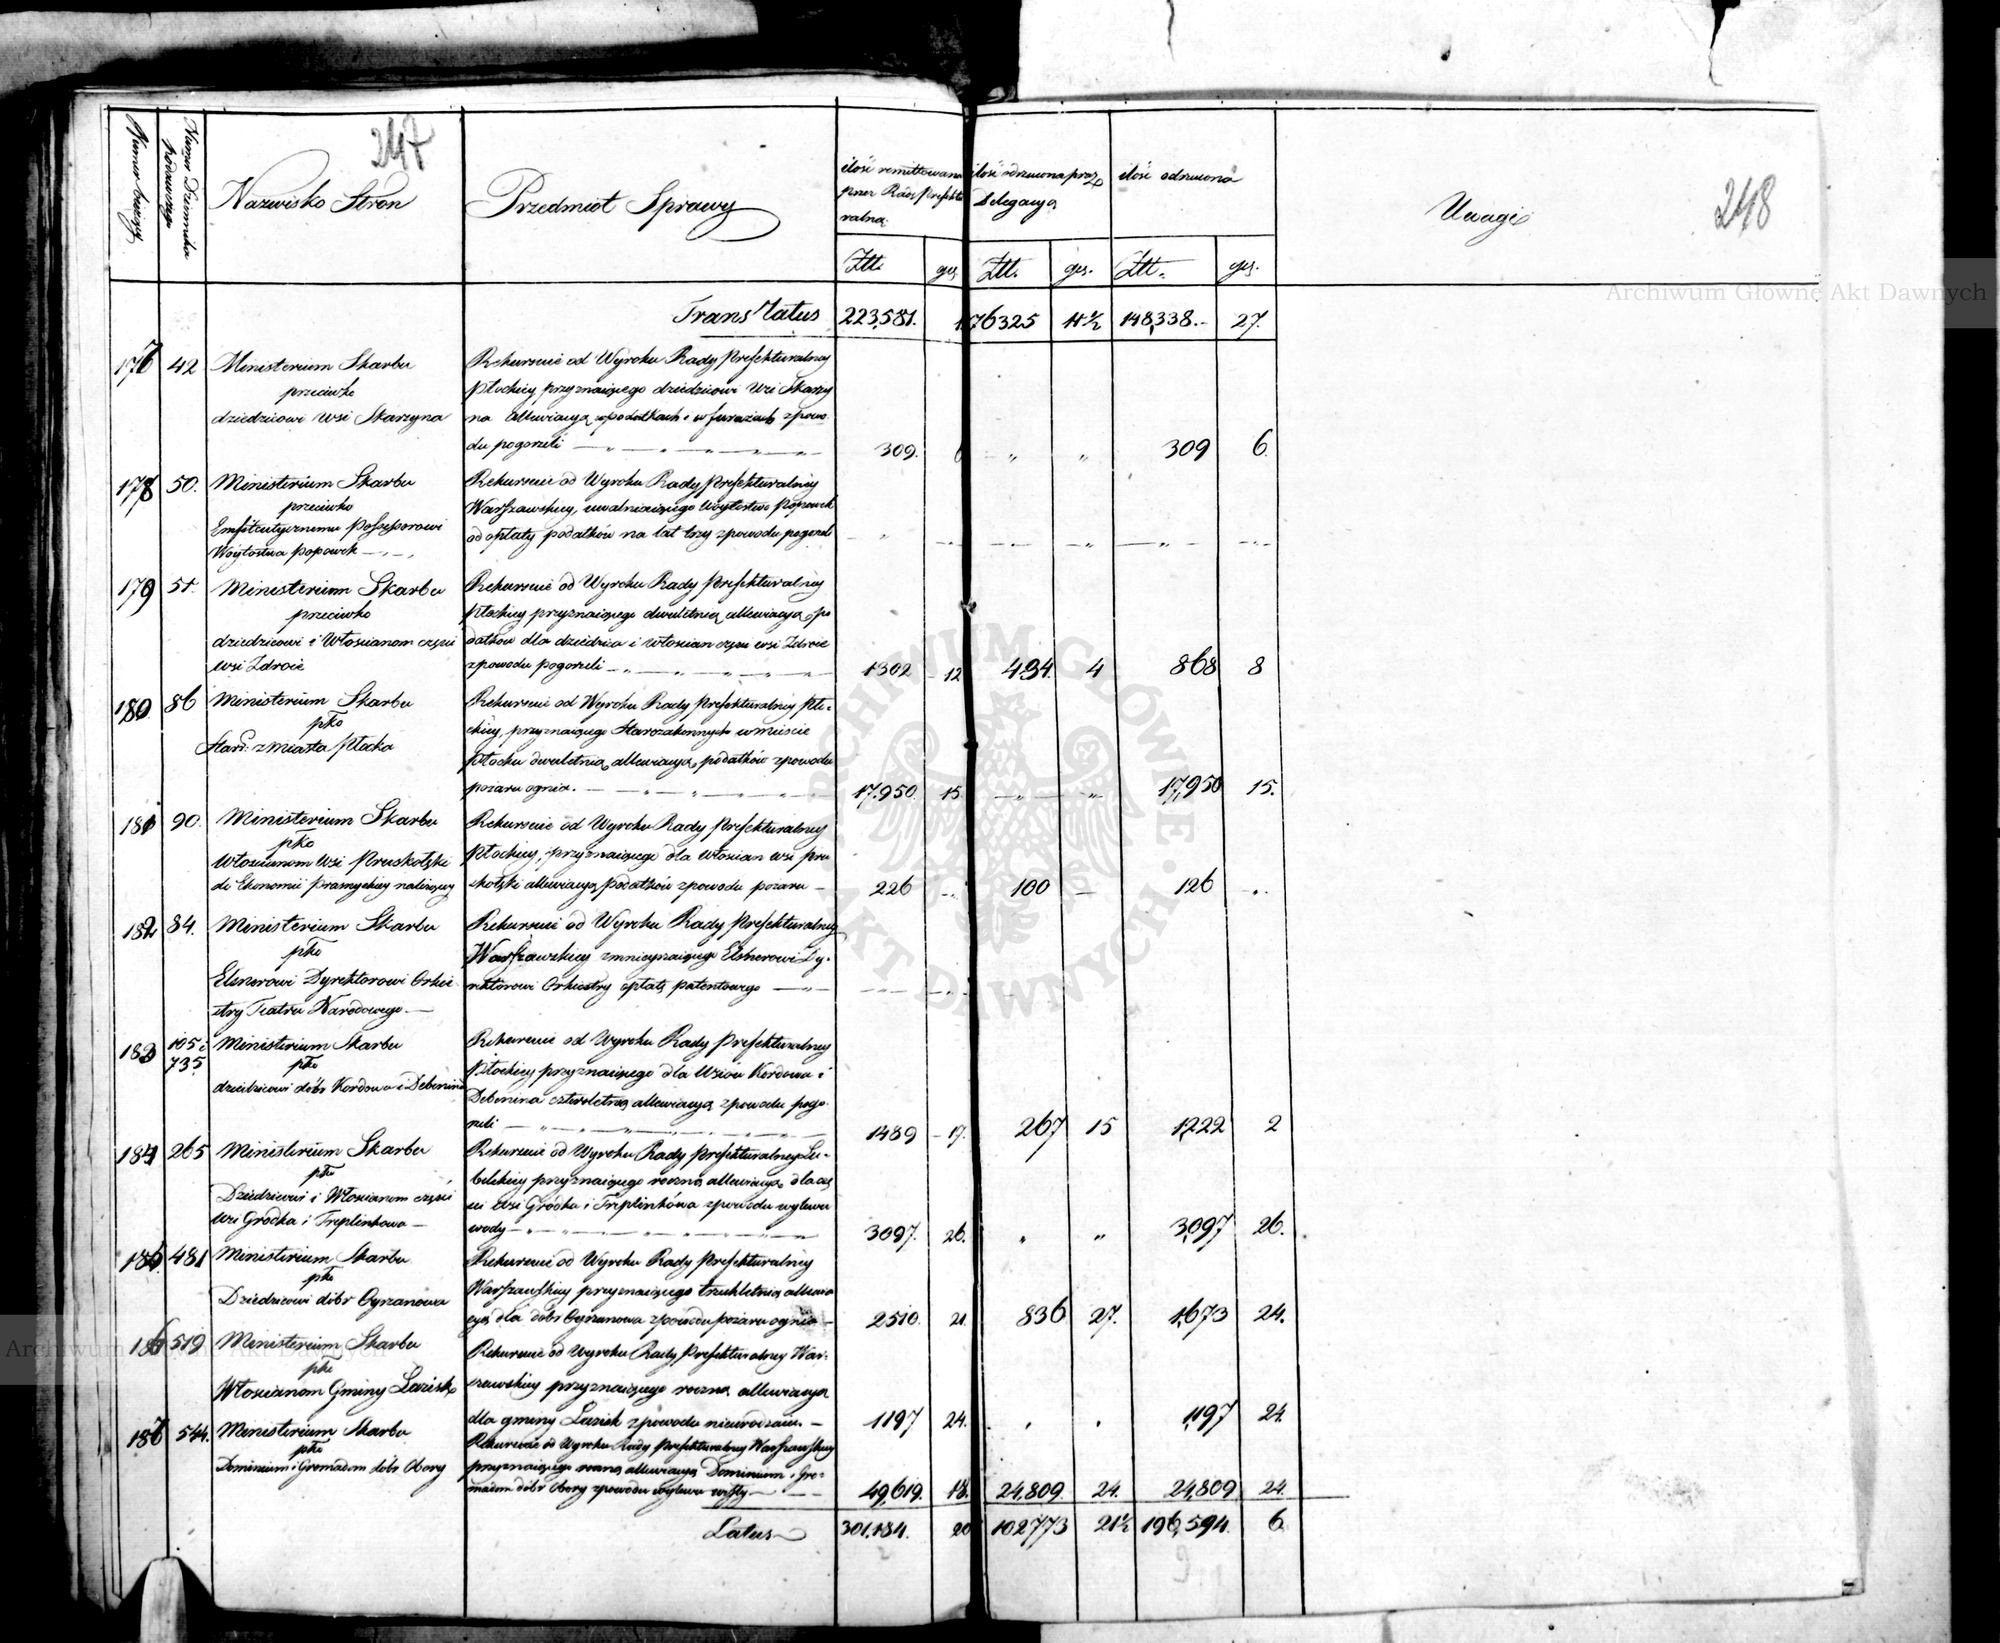 247
248
Numer bieżący
Numer Dziennika podawczego
Nazwisko Stron
Przedmiot Sprawy
ilość remittowana przez Radę Prefekturalną
ilość odrzucona przez Delegacyą
ilość odrzucona
Uwagi
Złt. gr. Złt. gr. Złt. gr.
Translatus 223,581. 76325 11½ 148,338.- 27.
177 42 Ministerium Skarbu
przeciwko
dziedzicowi Wsi Skarzyna
Rekursuie od Wyroku Rady Prefekturalney
Płockiey przyznaiącego dziedzicowi Wsi Skarzy
na allewiacyą w podatkach i w furażach z powo
du pogorzeli
309. 309 6
178 50. Ministerium Skarbu
przeciwko
Emfiteutycznemu Possessorowi
Woytostwa Popowek
Rekursuie od Wyroku Rady Prefekturalney
Warszawskiey, uwalniaiącego Woytostwo Popowek
od opłaty podatków na lat trzy z powodu pogorzeli
179 51. Ministerium Skarbu
przeciwko
dziedzicowi i Włościanom części
wsi Zdroie
Rekursuie od Wyroku Rady Prefekturalney
Płockiey przyznaiącego dwuletnią allewiacyą po
datków dla dziedzica i włościan części wsi Zdroie
z powodu pogorzeli
1302 12 434. 4 868 8
180 86 Ministerium Skarbu
pko
Star: z miasta Płocka
Rekursuie od Wyroku Rady Prefekturalney Pło-
ckiey, przyznaiącego Starozakonnych w mieście
Płocku dwuletnią allewiacyą podatków z powodu
pożaru ognia.
17.950. 15 17,950 15.
181 90. Ministerium Skarbu
pko
Włościanom Wsi Pruskołęki
do Ekonomii Pramyckiey należącey
Rekursuie od Wyroku Rady Prefekturalney
Płockiey, przyznaiącego dla Włościan wsi Pru
skołęki allewiacyą podatków z powodu pożaru –
226 100 126
182 84. Ministerium Skarbu
pko
Elsnerowi Dyrektorowi Orkie
stry Teatru Narodowego.
Rekursuie od Wyroku Rady Prefekturalney
Warszawskiey zmnieyszaiącego Elsnerowi Dy-
rektorowi Orkiestry opłatę patentowego
183 105 i 735. Ministerium Skarbu
pko
dziedzicowi dóbr Kordowa i Debenina
Rekursuie od Wyroku Rady Prefekturalney
Płockiey przyznaiącego dla Wsiów Kordowa i
Debenina czteroletnią allewiacyą z powodu pogo
rzeli
1489 17. 267 15 1222 2
184 265 Ministerium Skarbu
pko
Dziedzicowi i Włościanom części
wsi Gródka i Treplinkowa –
Rekursuie od Wyroku Rady Prefekturalney Lu-
belskiey przyznaiącego roczną allewiacyą dla czę
ści Wsi Gródka i Treplinkówa z powodu wylewu
wody
3097. 26. 3,097 26.
185 481 Ministerium Skarbu
pko
Dziedzicowi dóbr Oyrzanowa
Rekursuie od Wyroku Rady Prefekturalney
Warszawskiey przyznaiącego trzechletnią allewia
cyą dla dóbr Oyrzanowa z powodu pożaru ognia –
2510. 21. 836 27. 1,673 24.
186 519 Ministerium Skarbu
pko
Włościanom Gminy Łazisk
Rekursuie od Wyroku Rady Prefekturalney War-
szawskiey przyznaiącego roczną allewiacyą
dla gminy Łazisk z powodu nieurodzaiu. –
1197 24. 1,197 24.
187 544. Ministerium Skarbu
pko
Dominium i Gromadom dóbr Obory
Rekursuie od Wyroku Rady Prefekturalney Warszawskiey
przyznaiącego roczną allewiacyą Dominium i Gro-
madom dóbr Obory z powodu wylewu wisły
49,619. 18. 24,809 24. 24,809 24.
Latus 301,184. 20 102773 21½ 196,594. 6.
Archiwum Główne Akt Dawnych
ARCHIWUM GŁÓWNE AKT DAWNYCH
Archiwum Główne Akt Dawnych